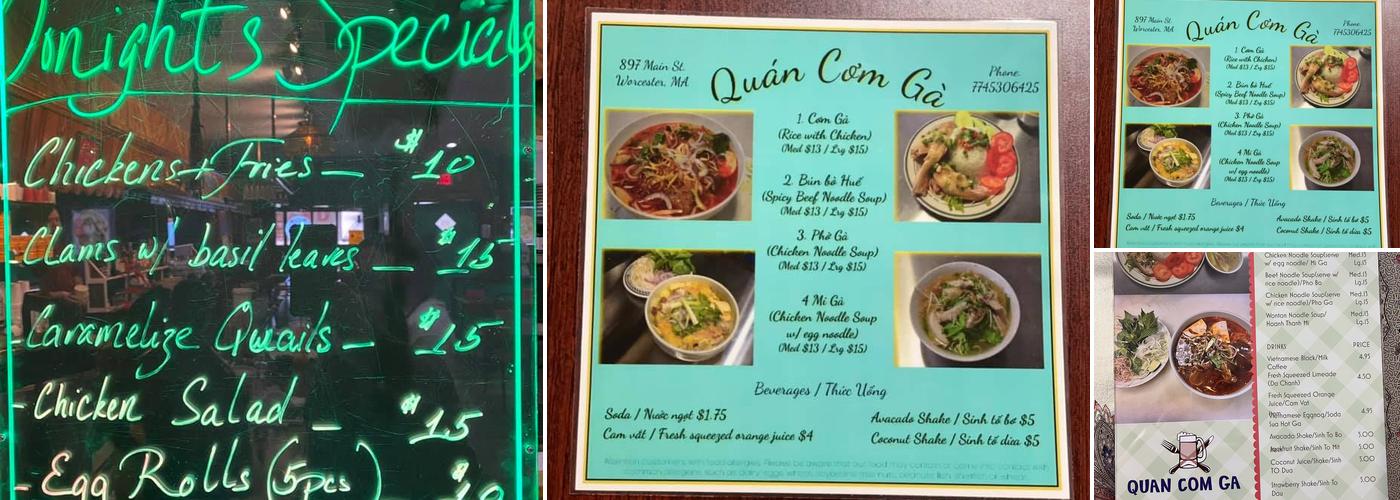 Tonight's Specials
Chickens + Fries — $10
Clams w/ basil leaves — $15
Caramelize Quails — $15
- Chicken Salad — $15
- Egg Rolls (5pcs)
897 Main St.
Worcester, MA
Quán Cơm Gà
Phone.
7745306425
1. Cơm Gà
(Rice with Chicken)
(Med $13 / Lrg $15)
2. Bún bò Huế
(Spicy Beef Noodle Soup)
(Med $13 / Lrg $15)
3. Phở Gà
(Chicken Noodle Soup)
(Med $13 / Lrg $15)
4 Mì Gà
(Chicken Noodle Soup
w/ egg noodle)
(Med $13 / Lrg $15)
Beverages / Thức Uống
Soda / Nước ngọt $1.75
Cam vắt / Fresh squeezed orange juice $4
Avacado Shake / Sinh tố bơ $5
Coconut Shake / Sinh tố dừa $5
Attention customers with food allergies. Please be aware that our food may contain or come into contact with
897 Main St.
Worcester, MA
Quán Cơm Gà
Phone.
7745306425
1. Cơm Gà
(Rice with Chicken)
(Med $13 / Lrg $15)
2. Bún bò Huế
(Spicy Beef Noodle Soup)
(Med $13 / Lrg $15)
3. Phở Gà
(Chicken Noodle Soup)
(Med $13 / Lrg $15)
4 Mì Gà
(Chicken Noodle Soup
w/ egg noodle)
(Med $13 / Lrg $15)
Beverages / Thức Uống
Soda / Nước ngọt $1.75
Cam vắt / Fresh squeezed orange juice $4
Avacado Shake / Sinh tố bơ $5
Coconut Shake / Sinh tố dừa $5
Chicken Noodle Soup(serve Med.13
w/ egg noodle/ Mi Ga Lg.15
Beef Noodle Soup(serve w/ Med.13
rice noodle)/Pho Bo Lg.15
Chicken Noodle Soup(serve Med.13
w/ rice noodle)/Pho Ga Lg.15
Wonton Noodle Soup/ Med.13
Hoanh Thanh Mi Lg.15
DRINKS PRICE
Vietnamese Black/Milk 4.95
Coffee
Fresh Squeezed Limeade 4.50
(Da Chanh)
Fresh Squeezed Orange
Juice/Cam Vat
Vietnamese Eggnog/Soda 4.95
Sua Hot Ga
Avocado Shake/Sinh To Bo 5.00
Jackfruit Shake/Sinh To Mit 5.00
Coconut Juice/Shake/Sinh 5.00
TO Dua
Strawberry Shake/Sinh To 5.00
Dau
QUAN COM GA